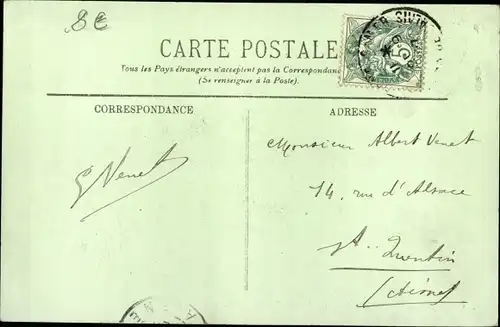 8€
CARTE POSTALE
Tous les Pays étrangers n'acceptent pas la Correspondance
(Se renseigner à la Poste).
CORRESPONDANCE
ADRESSE
Monsieur Albert Venet
14, rue d'Alsace
St. Quentin
(Aisne)
G Venet